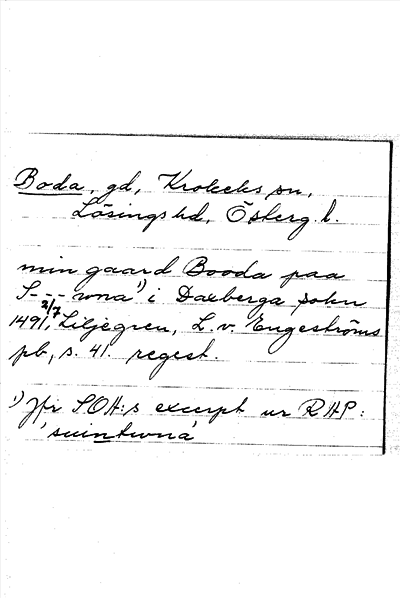 Boda, gd, Krokeks sn,
Lösings hd, Österg. l.
min gaard Booda paa
S---wna¹) i Daxberga sokn
1491 2/7, Liljegren, L. v. Engeströms
pb, s. 41. regest.
¹) Jfr SOA:s excerpt ur RAP:
'suintwna'